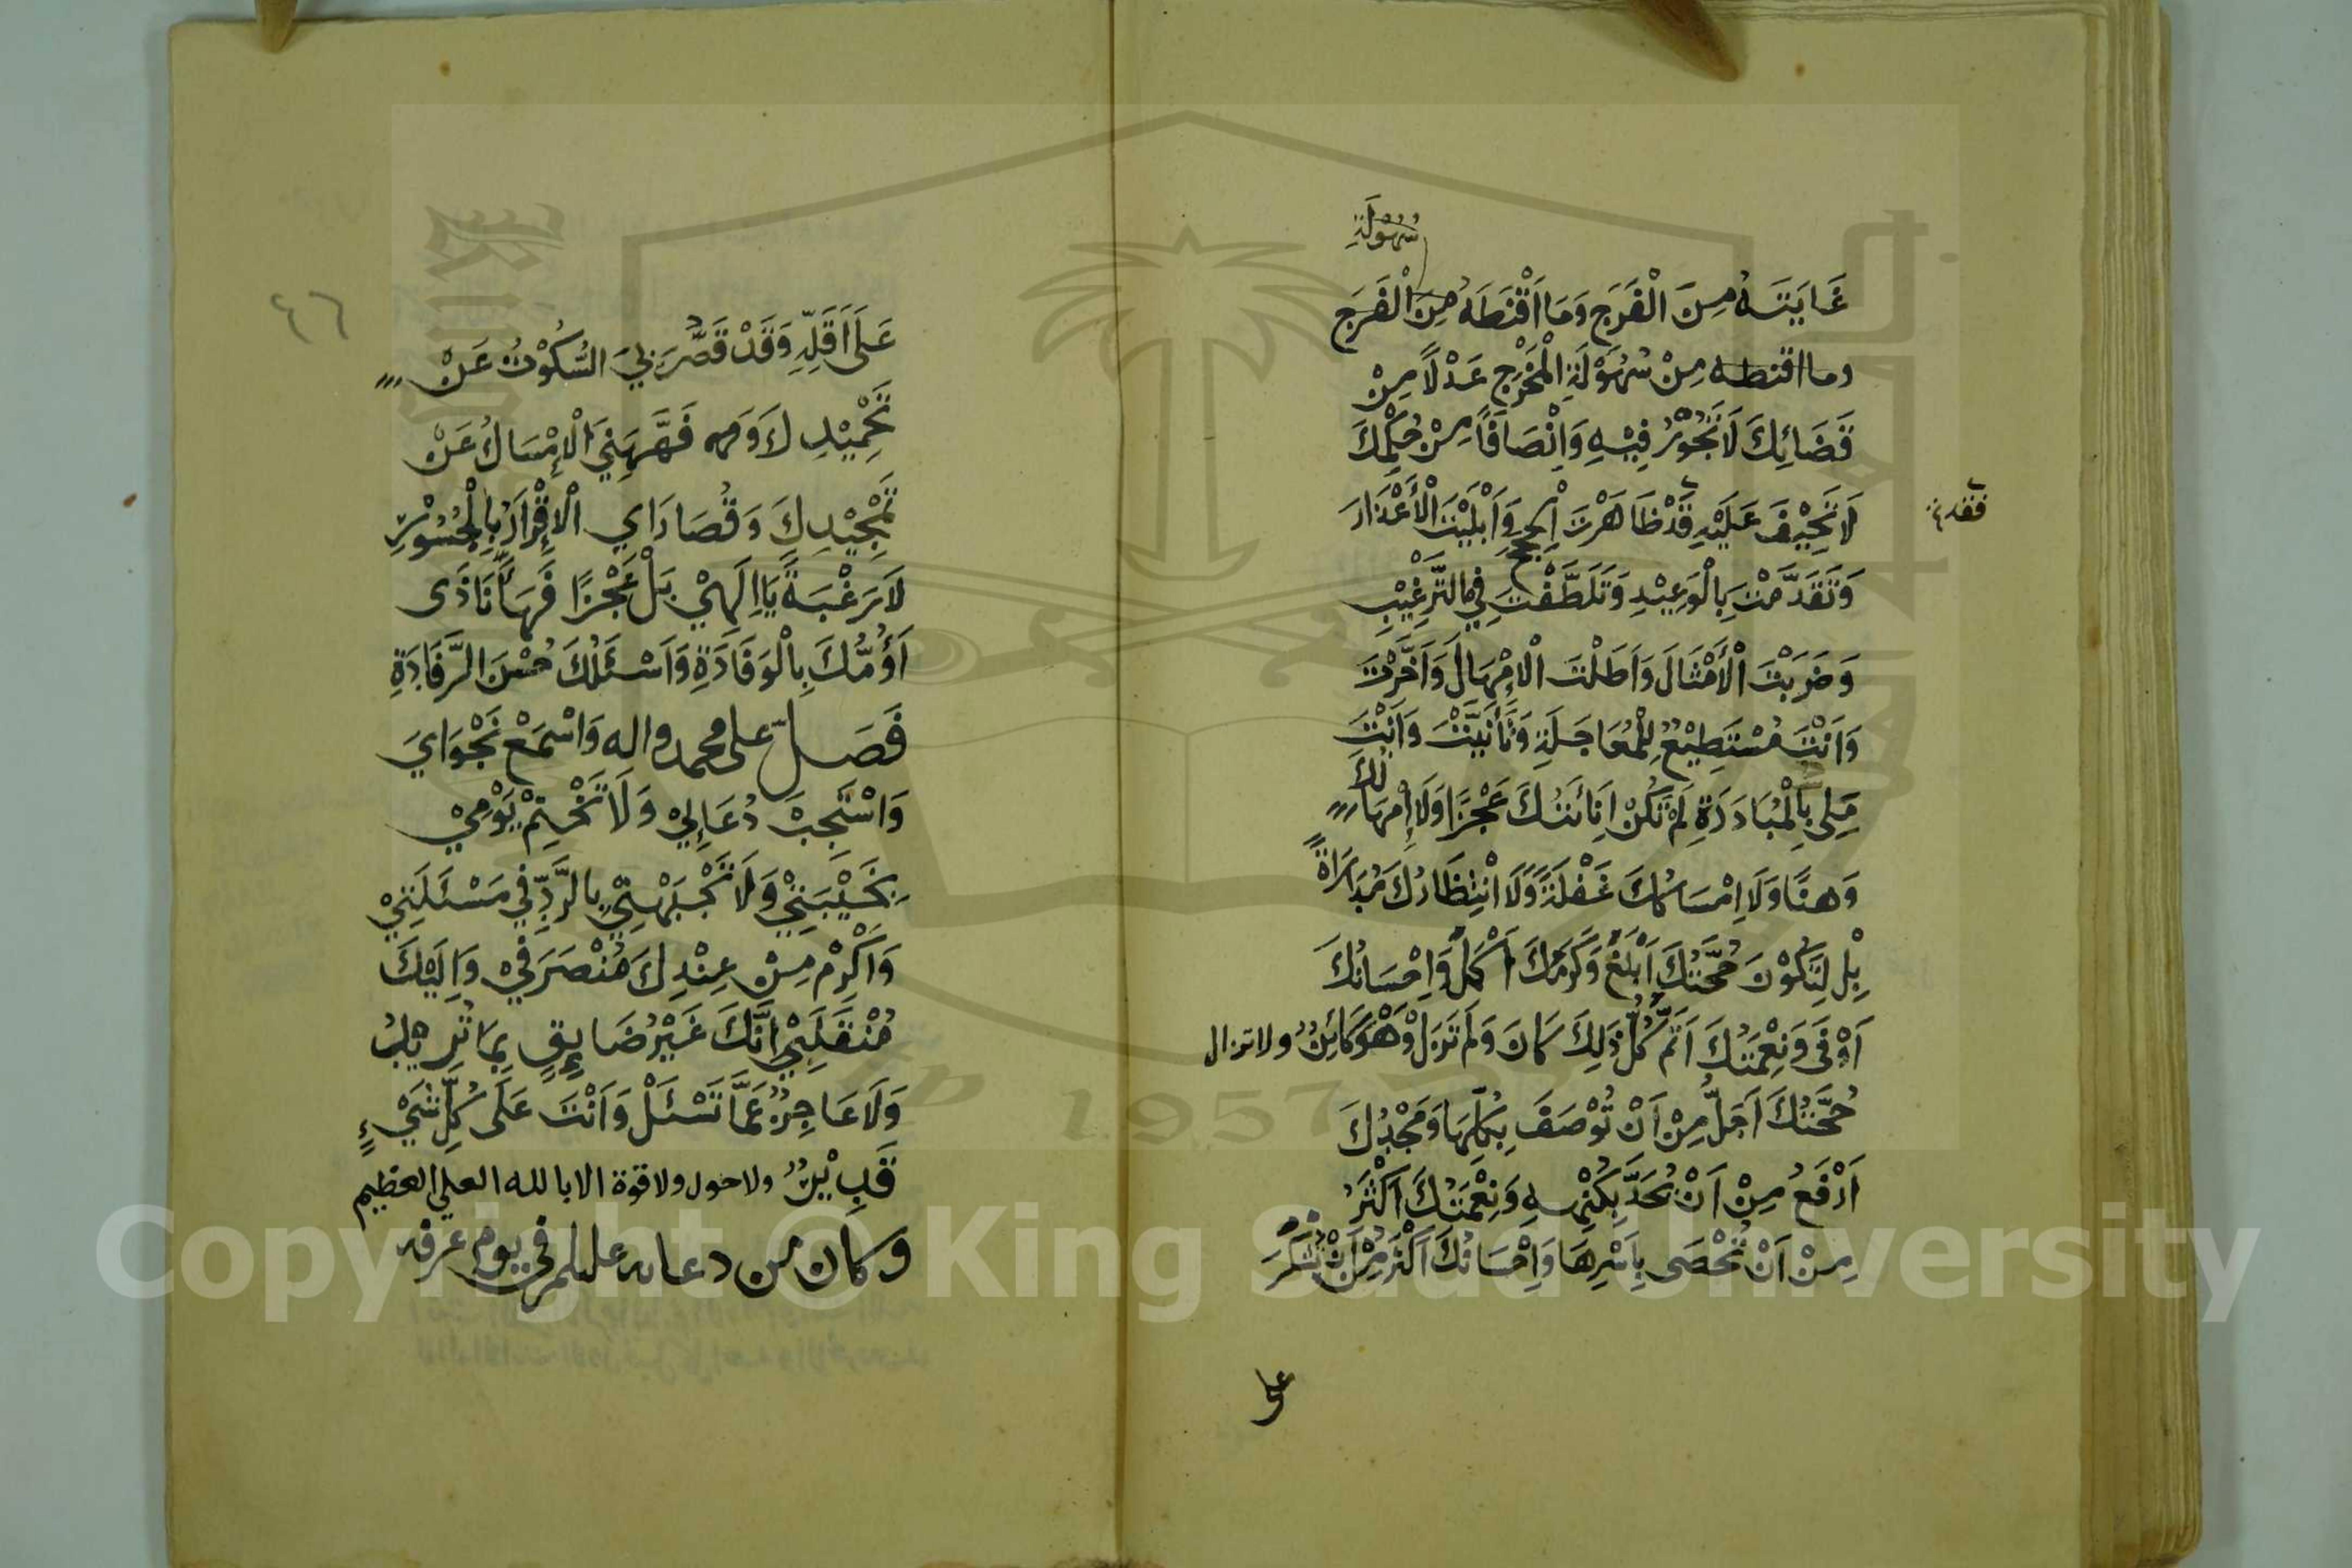 سُهُوْلَةِ
غَايَتَهُ مِنَ الْفَرَجِ وَمَا اَقْنَطَهُ مِنَ الْفَرَجِ
وما اقنطه مِنْ سُهُوْلَةِ الْمَخْرَجِ عَدْلًا مِنْ
قَضَائِكَ لَا تَجُوْرُ فِيْهِ وَاِنْصَافًا مِنْ حُكْمِكَ
لَا تَحِيْفُ عَلَيْهِ قَدْ ظَاهَرْتَ الْحُجَجَ وَاَبْلَيْتَ الْأَعْذَارَ
فقد
وَتَقَدَّمْتَ بِالْوَعِيْدِ وَتَلَطَّفْتَ فِي التَّرْغِيْبِ
وَضَرَبْتَ الْأَمْثَالَ وَاَطَلْتَ الْاِمْهَالَ وَاَخَّرْتَ
وَاَنْتَ مُسْتَطِيْعٌ لِلْمُعَاجَلَةِ وَتَأَنَّيْتَ وَاَنْتَ
مَلِى بِالْمُبَادَرَةِ لَمْ تَكُنْ اَنَاتُكَ عَجْزًا وَلَا اِمْهَالُكَ
وَهنًا وَلَا اِمْسَاكُكَ غَفْلَةً وَلَا انْتِظَارُكَ مُدَارَاةً
بَلْ لِتَكُوْنَ حُجَّتُكَ اَبْلَغَ وَكَرَمُكَ اَكْمَلَ وَاِحْسَانُكَ
اَوْفَى وَنِعْمَتُكَ اَتَمَّ كُلُّ ذَلِكَ كَانَ وَلَمْ تَزَلْ وَهُوَ كَائِنٌ ولا تزال
حُجَّتُكَ اَجَلُّ مِنْ اَنْ تُوْصَفَ بِكُلِّهَا وَمَجْدُكَ
اَرْفَعُ مِنْ اَنْ يُحَدَّ بِكُنْهِهِ وَنِعْمَتُكَ اَكْثَرُ
مِنْ اَنْ تُحْصَى بِاَسْرِهَا وَاِحْسَانُكَ اَكْثَرُ مِنْ اَنْ تُشْكَرَ
على
٤٦
عَلَى اَقَلِّهِ وَقَدْ قَصَّرَ بِيَ السُّكُوْتُ عَنْ
تَحْمِيْدِكَ وَفَهَّهَنِيَ الْاِمْسَاكُ عَنْ
تَمْجِيْدِكَ وَقُصَارَاي الْاِقْرَارُ بِالْحُسُوْرِ
لَا رَغْبَةً يَا اِلَهِيْ بَلْ عَجْزًا فَهَا اَنَا ذَى
اَؤُمُّكَ بِالْوَفَادَةِ وَاَسْئَلُكَ حُسْنَ الرَّفَادَةِ
فَصَلِّ على محمد واله وَاسْمَعْ نَجْوَايَ
وَاسْتَجِبْ دُعَائِيْ وَلَا تَخْتِمْ يَوْمِيْ
بِخَيْبَتِيْ وَلَا تَجْبَهْنِيْ بِالرَّدِّ فِي مَسْئَلَتِيْ
وَاَكْرِمْ مِنْ عِنْدِكَ مُنْصَرَفِيْ وَاِلَيْكَ
مُنْقَلَبِيْ اِنَّكَ غَيْرُ ضَايِقٍ بِمَا تُرِيْدُ
وَلَا عَاجِزٌ عَمَّا تَسْئَلْ وَاَنْتَ عَلَى كُلِّ شَيْءٍ
قَدِيْرٌ ولا حول ولا قوة الا بالله العلي العظيم
وكان من دعائه عليلم في يوم عرفه
Copyright © King Saud University
1957